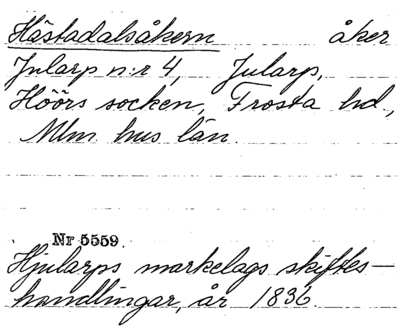 Hästadalsåkern åker
Jularp n:r 4, Jularp,
Höörs socken, Frosta hd.,
Mlm hus län.
Nr 5559.
Hjularps markelags skiftes-
handlingar, år 1836.